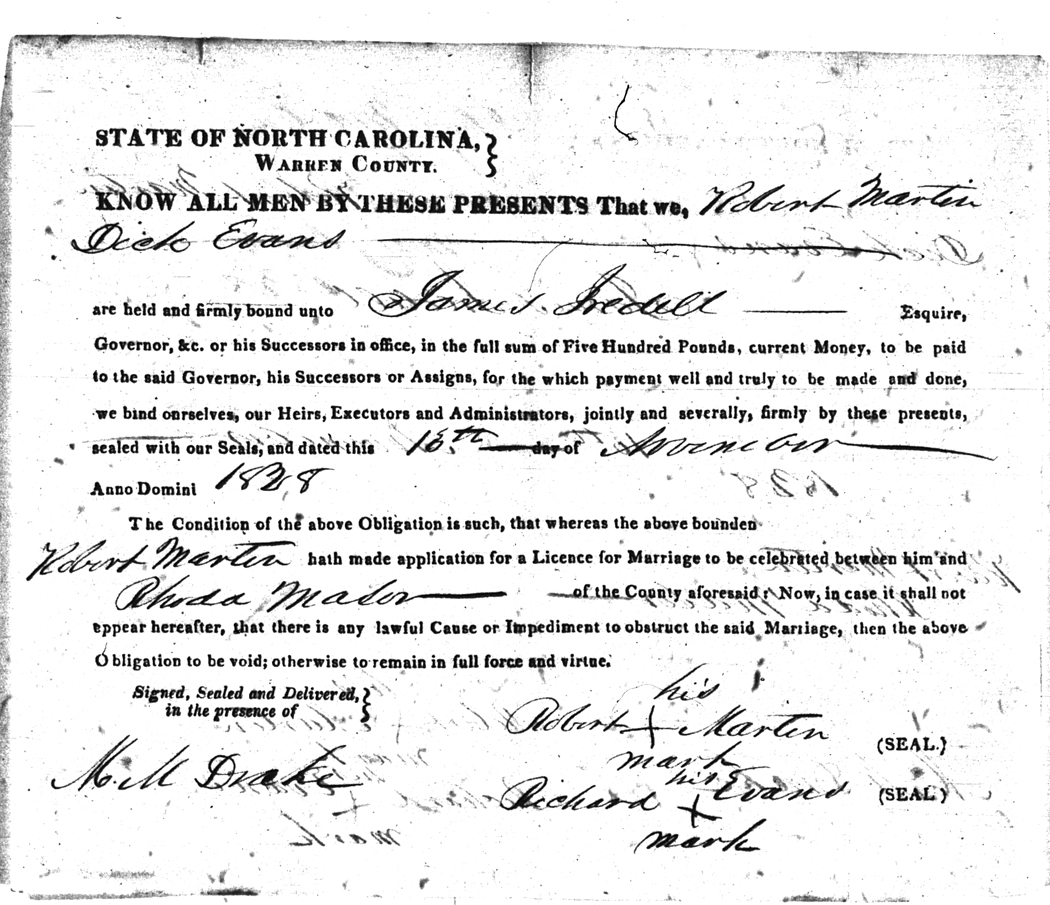 STATE OF NORTH CAROLINA,
WARREN COUNTY.
KNOW ALL MEN BY THESE PRESENTS That we, Robert Martin
Dick Evans
are held and firmly bound unto James Iredell Esquire,
Governor, &c. or his Successors in office, in the full sum of Five Hundred Pounds, current Money, to be paid
to the said Governor, his Successors or Assigns, for the which payment well and truly to be made and done,
we bind ourselves, our Heirs, Executors and Administrators, jointly and severally, firmly by these presents,
sealed with our Seals, and dated this day of November
Anno Domini 1828
The Condition of the above Obligation is such, that whereas the above bounden
Robert Martin hath made application for a Licence for Marriage to be celebrated between him and
Rhoda of the County aforesaid: Now, in case it shall not
appear hereafter, that there is any lawful Cause or Impediment to obstruct the said Marriage, then the above
Obligation to be void; otherwise to remain in full force and virtue.
Signed, Sealed and Delivered,
in the presence of
his
Robert X Martin (SEAL.)
mark
M. M Drake
his
Richard X Evans (SEAL)
mark